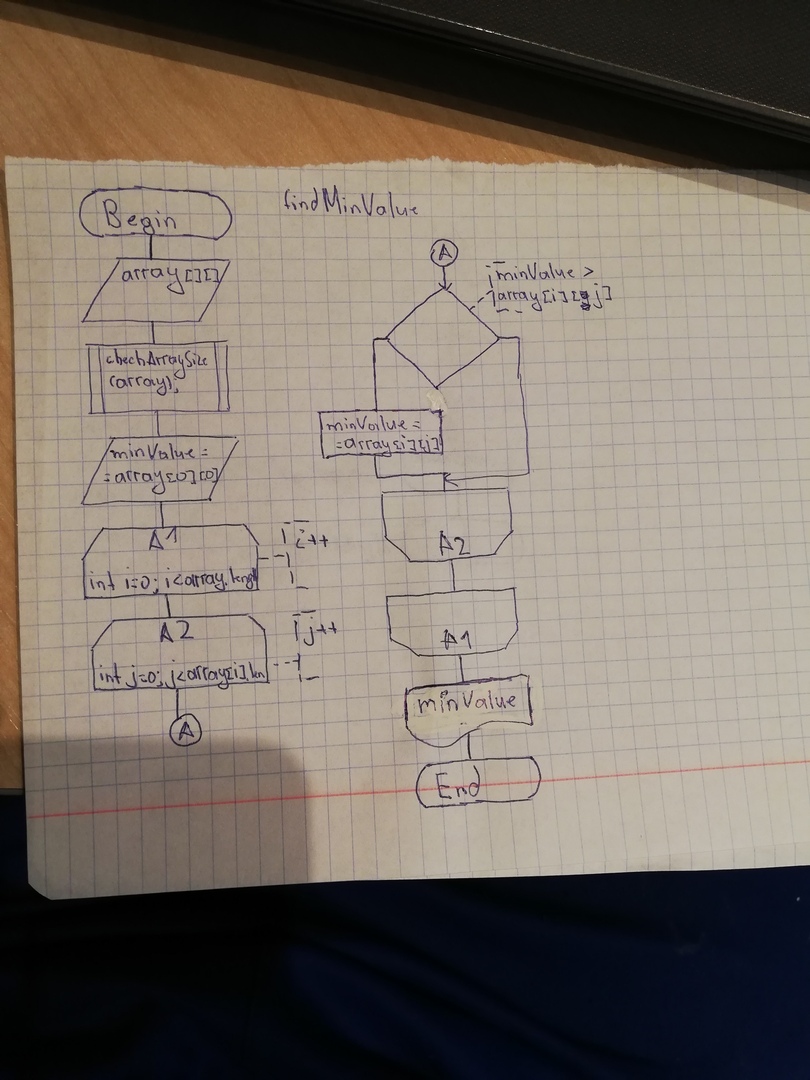 findMinValue
Begin
array[][]
chechArraySize
(array);
minValue =
= array[0][0]
A1
int i=0; i<array.lengt
i++
A2
int j=0; j<array[i].len
j++
A
A
minValue >
array[i][j]
minValue =
= array[i][j]
A2
A1
minValue
End